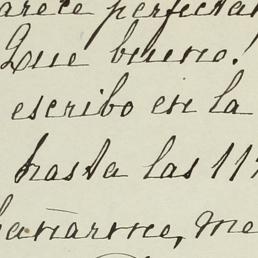 arece perfecta
Que bueno!
escribo en la
hasta las 11
bañarme, me